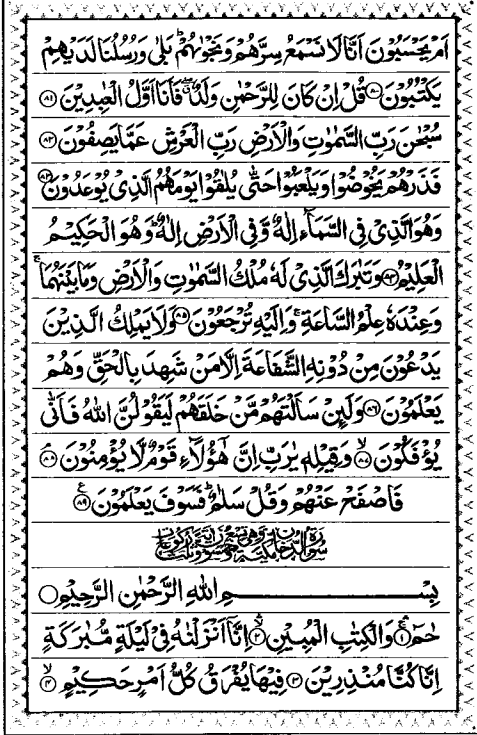 اَمْ يَحْسَبُوْنَ اَنَّا لَا نَسْمَعُ سِرَّهُمْ وَنَجْوٰىهُمْ ؕ بَلٰى وَرُسُلُنَا لَدَيْهِمْ
يَكْتُبُوْنَ ﴿۸۰﴾ قُلْ اِنْ كَانَ لِلرَّحْمٰنِ وَلَدٌ ۖ فَاَنَا اَوَّلُ الْعٰبِدِيْنَ ﴿۸۱﴾
سُبْحٰنَ رَبِّ السَّمٰوٰتِ وَالْاَرْضِ رَبِّ الْعَرْشِ عَمَّا يَصِفُوْنَ ﴿۸۲﴾
فَذَرْهُمْ يَخُوْضُوْا وَيَلْعَبُوْا حَتّٰى يُلٰقُوْا يَوْمَهُمُ الَّذِىْ يُوْعَدُوْنَ ﴿۸۳﴾
وَهُوَ الَّذِىْ فِى السَّمَآءِ اِلٰهٌ وَّفِى الْاَرْضِ اِلٰهٌ ؕ وَهُوَ الْحَكِيْمُ
الْعَلِيْمُ ﴿۸۴﴾ وَتَبٰرَكَ الَّذِىْ لَهٗ مُلْكُ السَّمٰوٰتِ وَالْاَرْضِ وَمَا بَيْنَهُمَا ۚ
وَعِنْدَهٗ عِلْمُ السَّاعَةِ ۚ وَاِلَيْهِ تُرْجَعُوْنَ ﴿۸۵﴾ وَلَا يَمْلِكُ الَّذِيْنَ
يَدْعُوْنَ مِنْ دُوْنِهِ الشَّفَاعَةَ اِلَّا مَنْ شَهِدَ بِالْحَقِّ وَهُمْ
يَعْلَمُوْنَ ﴿۸۶﴾ وَلَئِنْ سَاَلْتَهُمْ مَّنْ خَلَقَهُمْ لَيَقُوْلُنَّ اللّٰهُ فَاَنّٰى
يُؤْفَكُوْنَ ۙ﴿۸۷﴾ وَقِيْلِهٖ يٰرَبِّ اِنَّ هٰٓؤُلَآءِ قَوْمٌ لَّا يُؤْمِنُوْنَ ۘ﴿۸۸﴾
فَاصْفَحْ عَنْهُمْ وَقُلْ سَلٰمٌ ؕ فَسَوْفَ يَعْلَمُوْنَ ﴿۸۹﴾
بِسْمِ اللّٰهِ الرَّحْمٰنِ الرَّحِيْمِ
حٰمٓ ﴿۱﴾ وَالْكِتٰبِ الْمُبِيْنِ ﴿۲﴾ اِنَّاۤ اَنْزَلْنٰهُ فِىْ لَيْلَةٍ مُّبٰرَكَةٍ
اِنَّا كُنَّا مُنْذِرِيْنَ ﴿۳﴾ فِيْهَا يُفْرَقُ كُلُّ اَمْرٍ حَكِيْمٍ ۙ﴿۴﴾